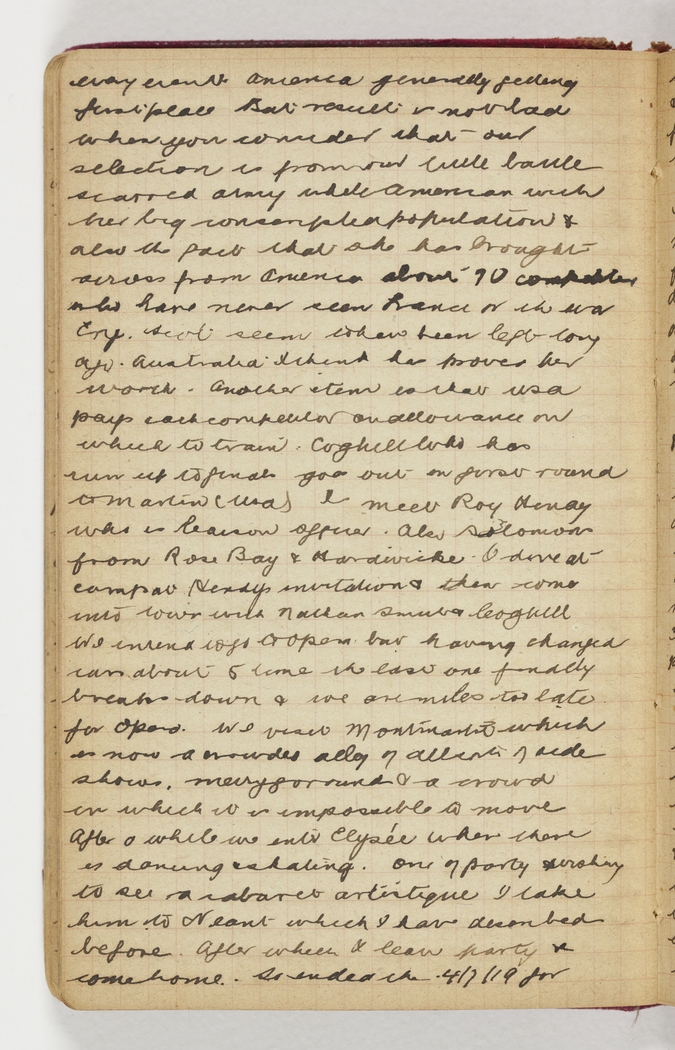 every event America generally getting
first place But result is not bad
when you consider that our
selection is from our little battle
scarred army while American with
her big conscripted population &
also the fact that she has brought
across from America about 90 competitors
who have never seen France or the war
Cry. Scot seem to have been left long
ago. Australia I think has proved her
worth. Another item is that USA
pays each competitor an allowance on
which to train. Coghill who has
run up to finals goes out in first round
to Martin (USA) I meet Roy Hendy
who is liaison officer. Also Solomons
from Rose Bay & Hardwicke. I dine at
camp at Hendys invitation & then come
into town with Nathan Smith & Coghill
We intend to go to Opera but having changed
cars about 5 time the last one finally
breaks down & we are miles too late
for Opera. We visit Montmartre which
is now a crowded alley of all sorts of side
shows, merrygoround & a crowd
in which it is impossible to move
After a while we enter Elysée where there
is dancing & skating. One of party wishing
to see a cabaret artistique I take
him to Neant which I have described
before. After which I leave party &
come home. So ended the 4/7/19 for